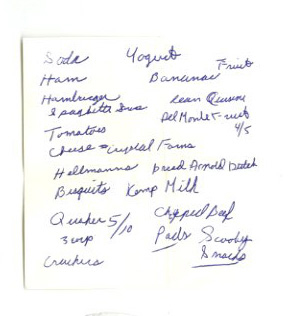 Soda Yogurt Fruit
Ham Bananas
Hamburger Lean Quisine
Spaghetti Del Monte Fruit
Tomatoes 4/5
Cheese = Crystal Farms
Hellmanns bread Arnold Dutch
Bisquits Kemp Milk
Quaker 5/10 Chipped Beef
Pads Scooby
Crackers Snacks